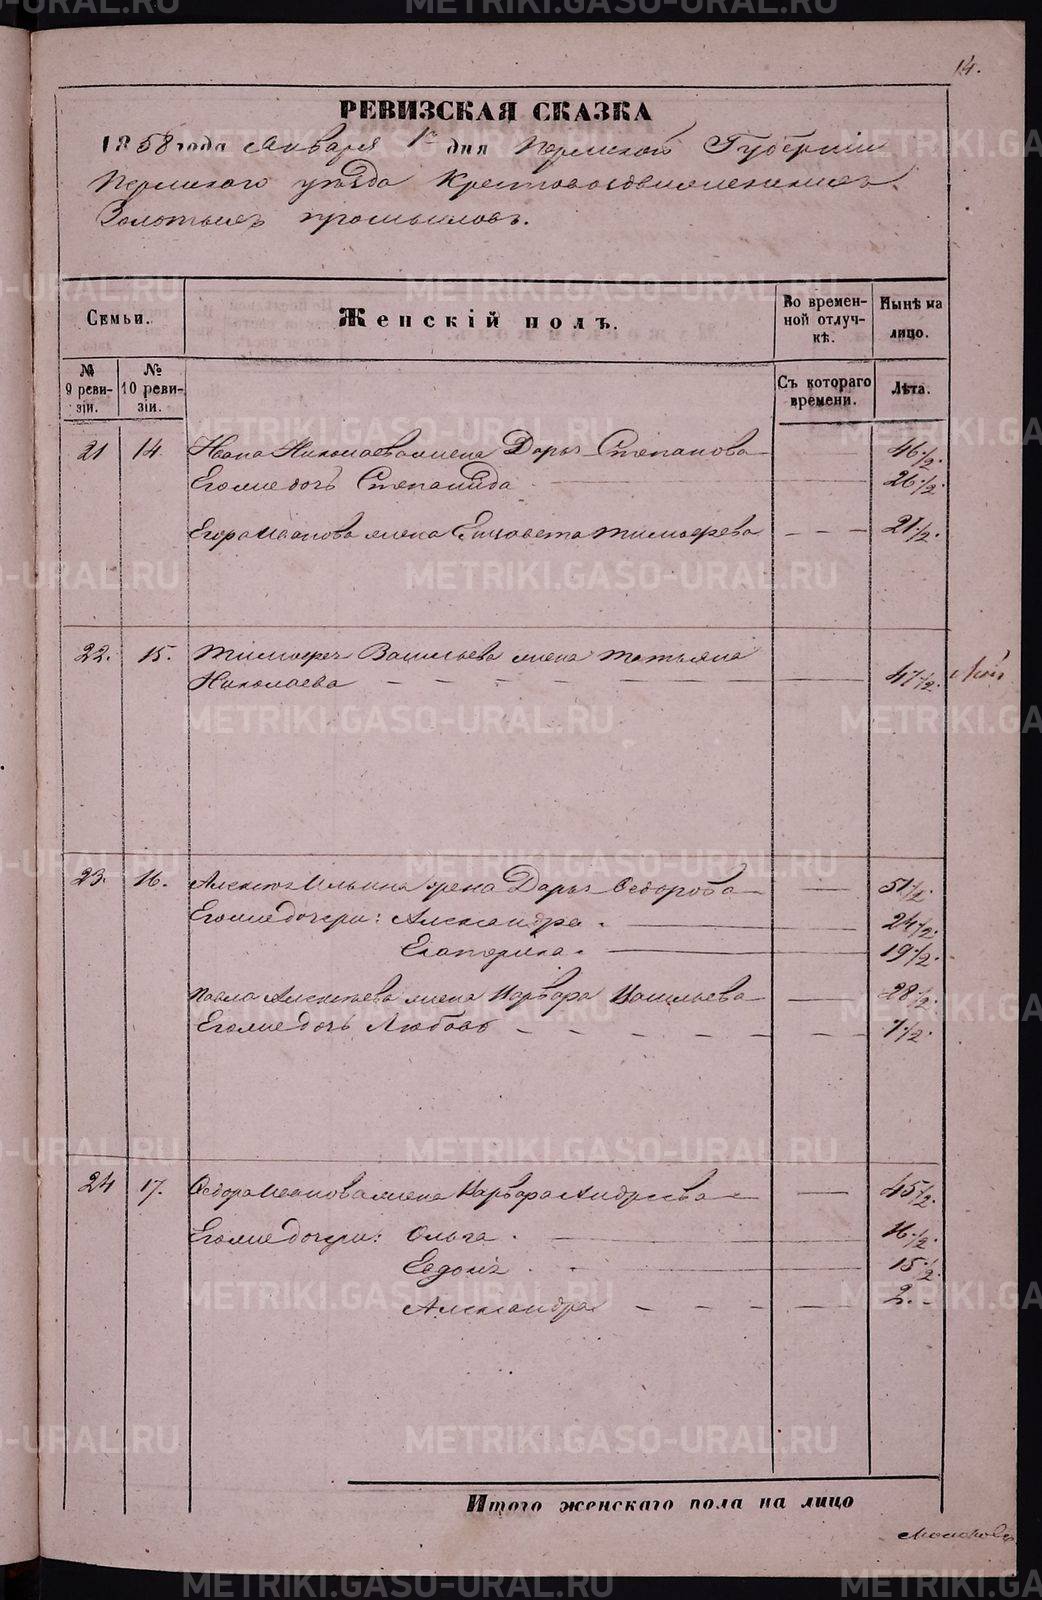 14.
РЕВИЗСКАЯ СКАЗКА
1858 года Января 1го дня Пермской Губернiи
Пермского уѣзда Крестовоздвиженскихъ
Золотыхъ промысловъ.
Семьи.
Женскій полъ.
Во времен-
ной отлуч-
кѣ.
Нынѣ на
лицо.
№
9 реви-
зіи.
№
10 реви-
зіи.
Съ котораго
времени.
Лѣта.
21 14 Ивана Николаева жена Дарья Степанова 46 1/2.
Его же дочь Степанида 26 1/2.
Егора Иванова жена Елизавета Тимофеева 21 1/2.
22. 15. Тимофея Васильева жена Татьяна
Николаева 47 1/2.
23. 16. Алексея Ильина жена Дарья Федорова 51 1/2.
Его же дочери: Александра 24 1/2.
Екатерина 19 1/2.
Павла Алексеева жена Варвара Васильева 28 1/2.
Его же дочь Любовь 7 1/2.
24 17. Федора Иванова жена Варвара Андреева 45 1/2.
Его же дочери: Ольга 16 1/2.
Евдокія 15 1/2
Александра 2.
Итого женскаго пола на лицо
METRIKI.GASO-URAL.RU